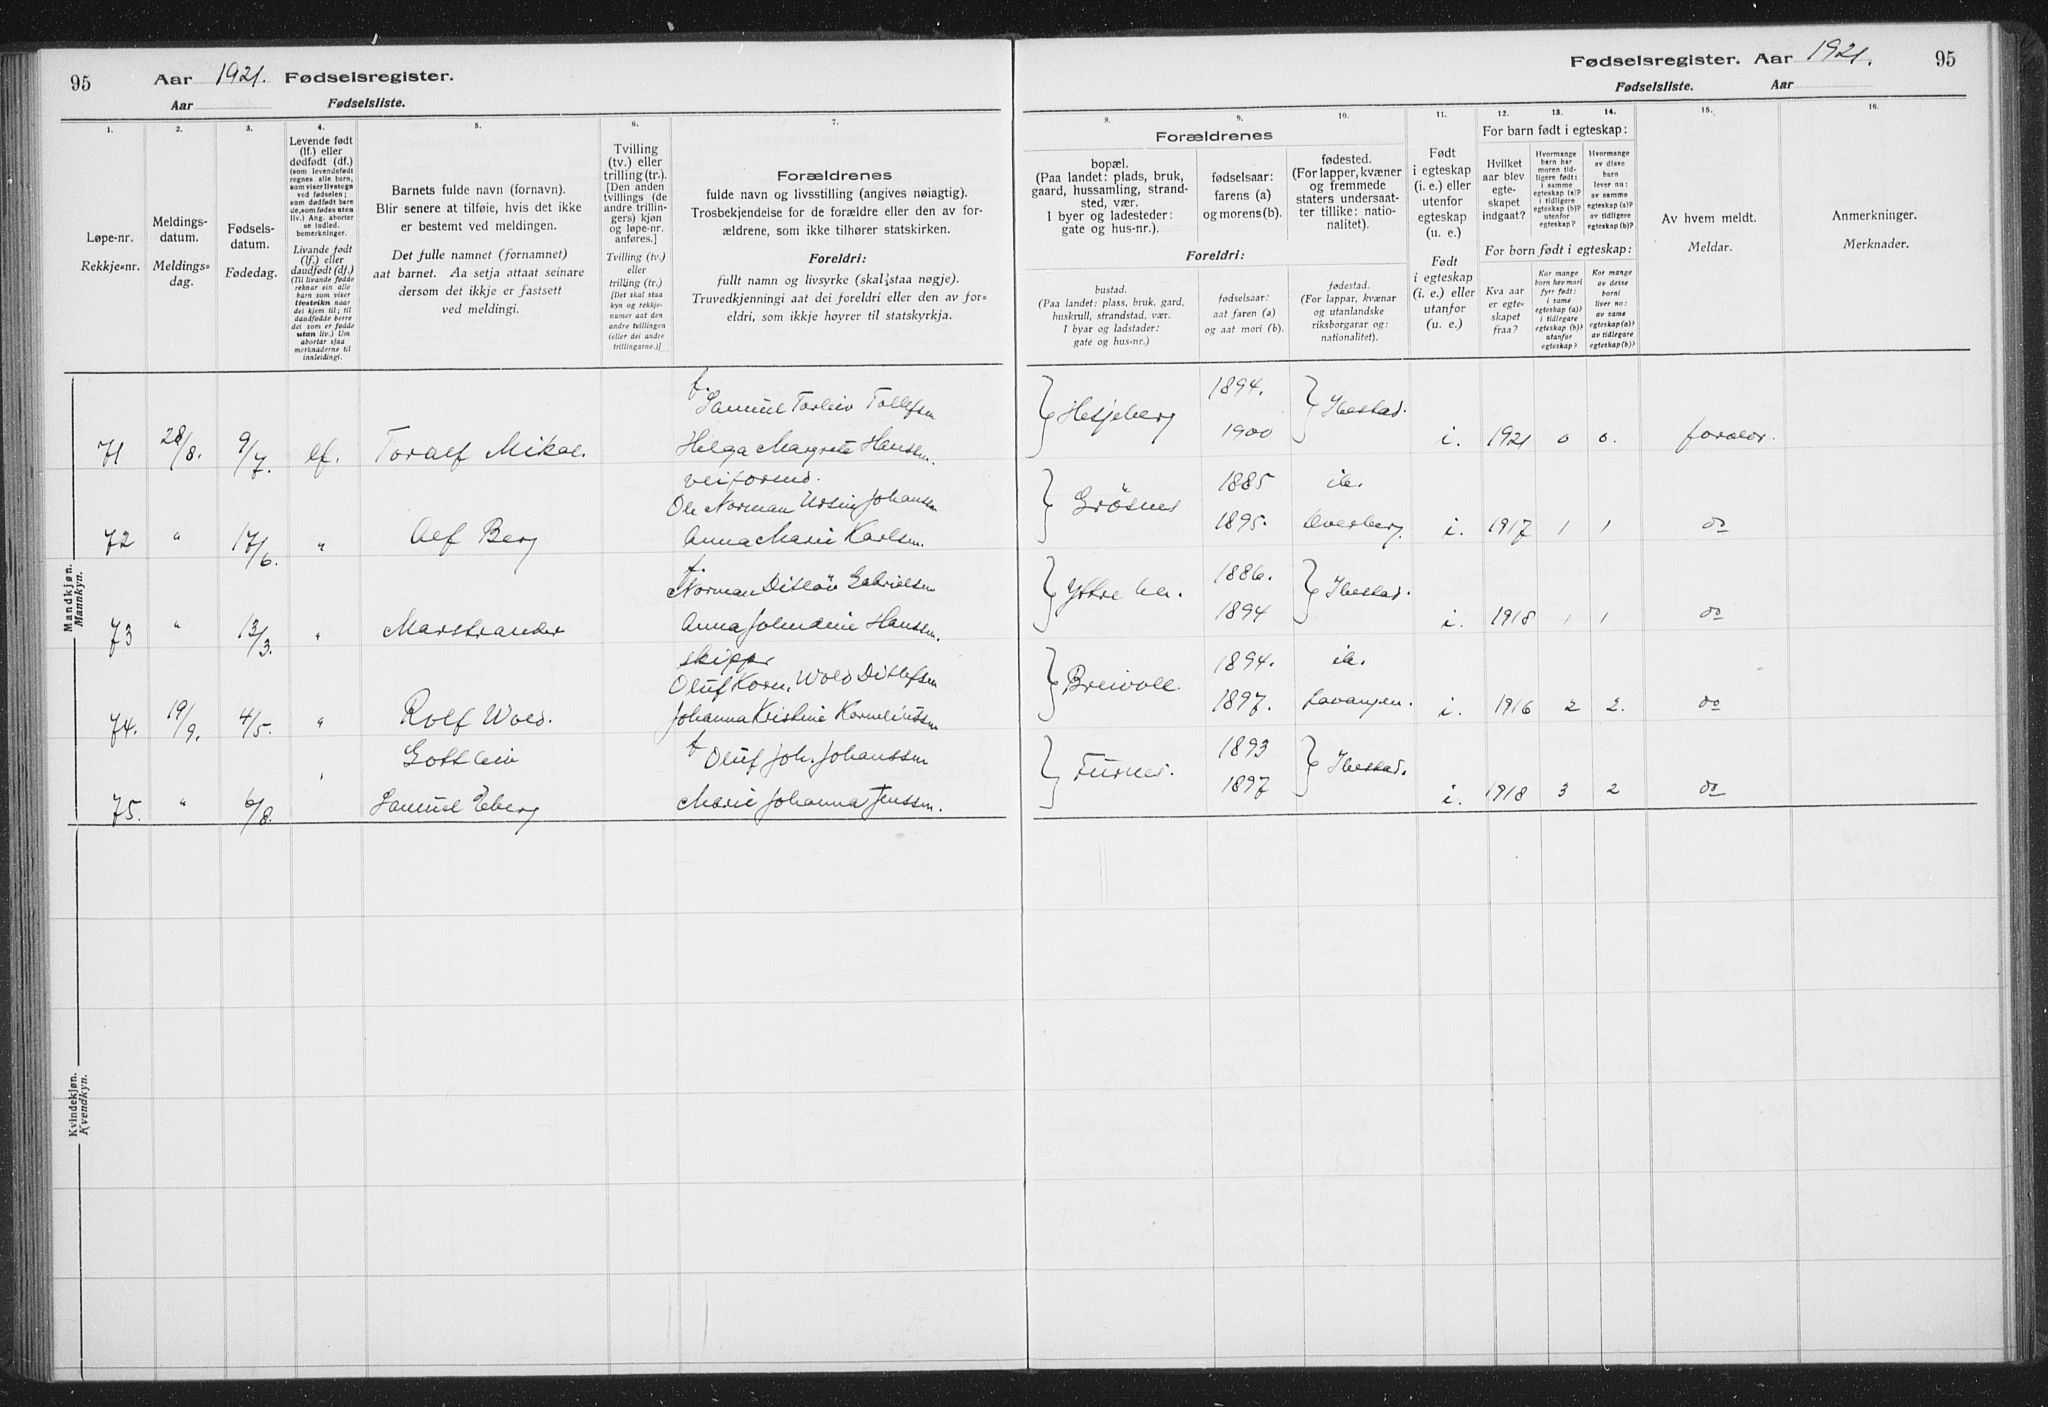 95 Aar 1921. Fødselsregister.
Aar Fødselsliste.
1. 2. 3. 4. 5. 6. 7.
Løpe-nr.
Rekkje=nr.
Meldings-
datum.
Meldings=
dag.
Fødsels-
datum.
Fødedag.
Levende født
(lf.) eller
dødfødt (df.)
(som levendefødt
regnes alle barn,
som viser livstegn
ved fødselen;
som dødfødt bare
de, som fødes uten
liv.) Ang. aborter
se indled.
bemerkninger.
Livande født
(lf.) eller
daudfødt (df.)
(Til livande fødde
reknar ein alle
barn som viser
livsteikn naar
dei kjem til; til
daudfødde berre
dei som er fødde
utan liv.) Um
abortar sjaa
merknaderne til
innleidingi.
Barnets fulde navn (fornavn).
Blir senere at tilføie, hvis det ikke
er bestemt ved meldingen.
Det fulle namnet (fornamnet)
aat barnet. Aa setja attaat seinare
dersom det ikkje er fastsett
ved meldingi.
Tvilling
(tv.) eller
trilling (tr.).
[Den anden
tvillings (de
andre trillin-
gers) kjøn
og løpe-nr.
anføres.]
Tvilling (tv.)
eller
trilling (tr.)
[Det skal staa
kyn og rekkje-
numer aat den
andre tvillingen
(eller dei andre
trillingarne.)]
Forældrenes
fulde navn og livsstilling (angives nøiagtig).
Trosbekjendelse for de forældre eller den av for-
ældrene, som ikke tilhører statskirken.
Foreldri:
fullt namn og livsyrke (skal staa nøgje).
Truvedkjenningi aat dei foreldri eller den av for=
eldri, som ikkje høyrer til statskyrkja.
Mandkjøn.
Mannkyn.
71 28/8. 9/7. lf. Toralf Mikal.
Samuel Torleiv Tollefsen
Helga Margrete Hanssen.
72 " 17/6. " Alf Berg
veiformd.
Ole Norman Ursin Johanssen
Anna Marie Karlsen.
73 " 13/3. " Marstrander
Norman Ditløv Gabrielsen
Anna Johndine Hanssen.
74. 19/9. 4/5. " Rolf Wold.
skipper
Oluf Korn. Wold Ditlefsen
Johanna Kristine Korneliussen
75. " 6/8. "
Gottleiv
Samuel Eberg
Oluf Joh. Johanssen
Marie Johanna Jenssen.
Kvindekjøn.
Kvendkyn.
Fødselsregister. Aar 1921. 95
Fødselsliste. Aar
8. 9. 10. 11. 12. 13. 14. 15. 16.
Forældrenes
bopæl.
(Paa landet: plads, bruk,
gaard, hussamling, strand-
sted, vær.
I byer og ladesteder:
gate og hus-nr.).
fødselsaar:
farens (a)
og morens (b).
fødested.
(For lapper, kvæner
og fremmede
staters undersaat-
ter tillike: natio-
nalitet).
Foreldri:
bustad.
(Paa landet: plass, bruk, gard,
huskrull, strandstad, vær.
I byar og ladstader:
gate og hus=nr.)
fødselsaar:
aat faren (a)
og aat mori (b).
fødestad.
(For lappar, kvænar
og utanlandske
riksborgarar og:
nationalitet).
Født
i egteskap
(i. e.) eller
utenfor
egteskap
(u. e.)
Født
i egteskap
(i. e.) eller
utanfor
(u. e.)
For barn født i egteskap:
Hvilket
aar blev
egte-
skapet
indgaat?
Hvormange
barn har
moren tid-
ligere født:
i samme
egteskap (a)?
i tidligere
egteskap (b)?
utenfor
egteskap?
Hvormange
av disse
barn
lever nu:
av samme
egteskap (a)?
av tidligere
egteskap (b)?
For born født i egteskap:
Kva aar
er egte-
skapet
fraa?
Kor mange
born hev mori
fyrr født:
i same
egteskap (a)?
i tidlegare
egteskap (b)?
utanfor
egteskap?
Kor mange
av desse
borni
liver no:
av same
egteskap (a)?
av tidlegare
egteskap (b)?
Av hvem meldt.
Meldar.
Anmerkninger.
Merknader.
Hesjeberg 1894. 1900 Ibestad. i. 1921 0 0. foreldr.
Grøsnes 1885 1895. ib. Overberg. i. 1917 1 1 do
Yttre 1886. 1894 Ibestad. i. 1918 1 1 do
Breivoll 1894. 1897. ib. Lavangen. i. 1916 2 2. do
Furnes. 1893 1897 Ibestad. i. 1918 3 2 do